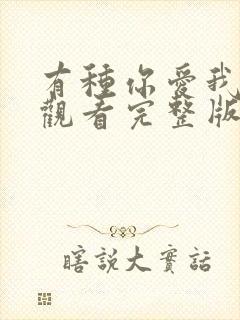 有種你愛我
觀看完整版
瞎說大實話